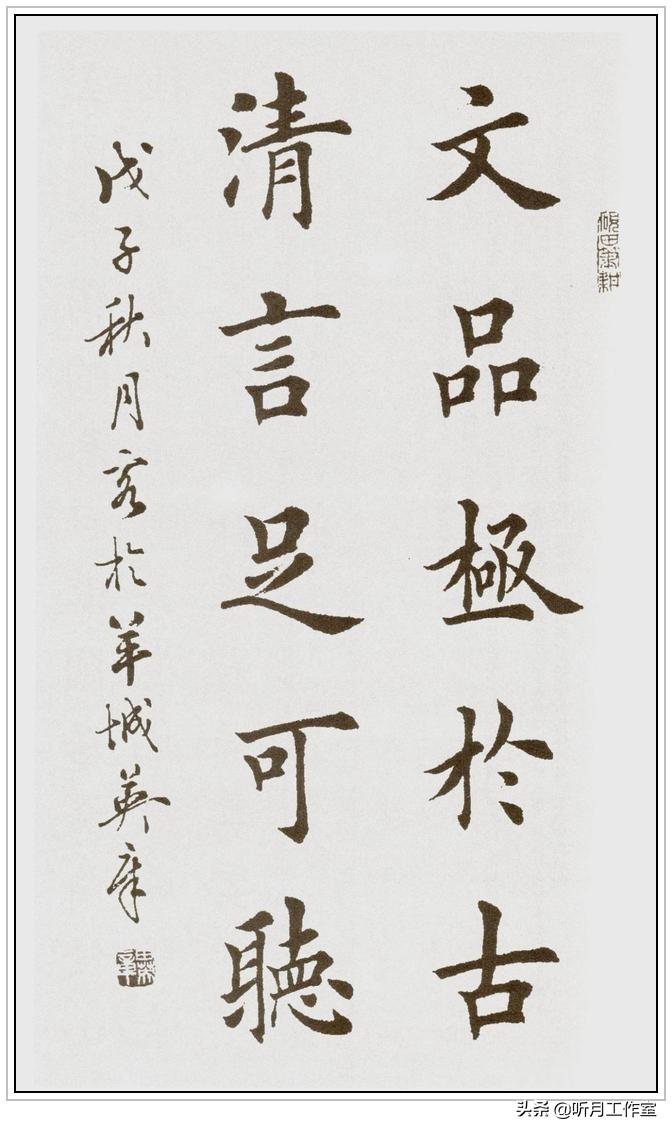 文品極於古
清言足可聽
戊子秋月客於羊城英章
头条 @听月工作室